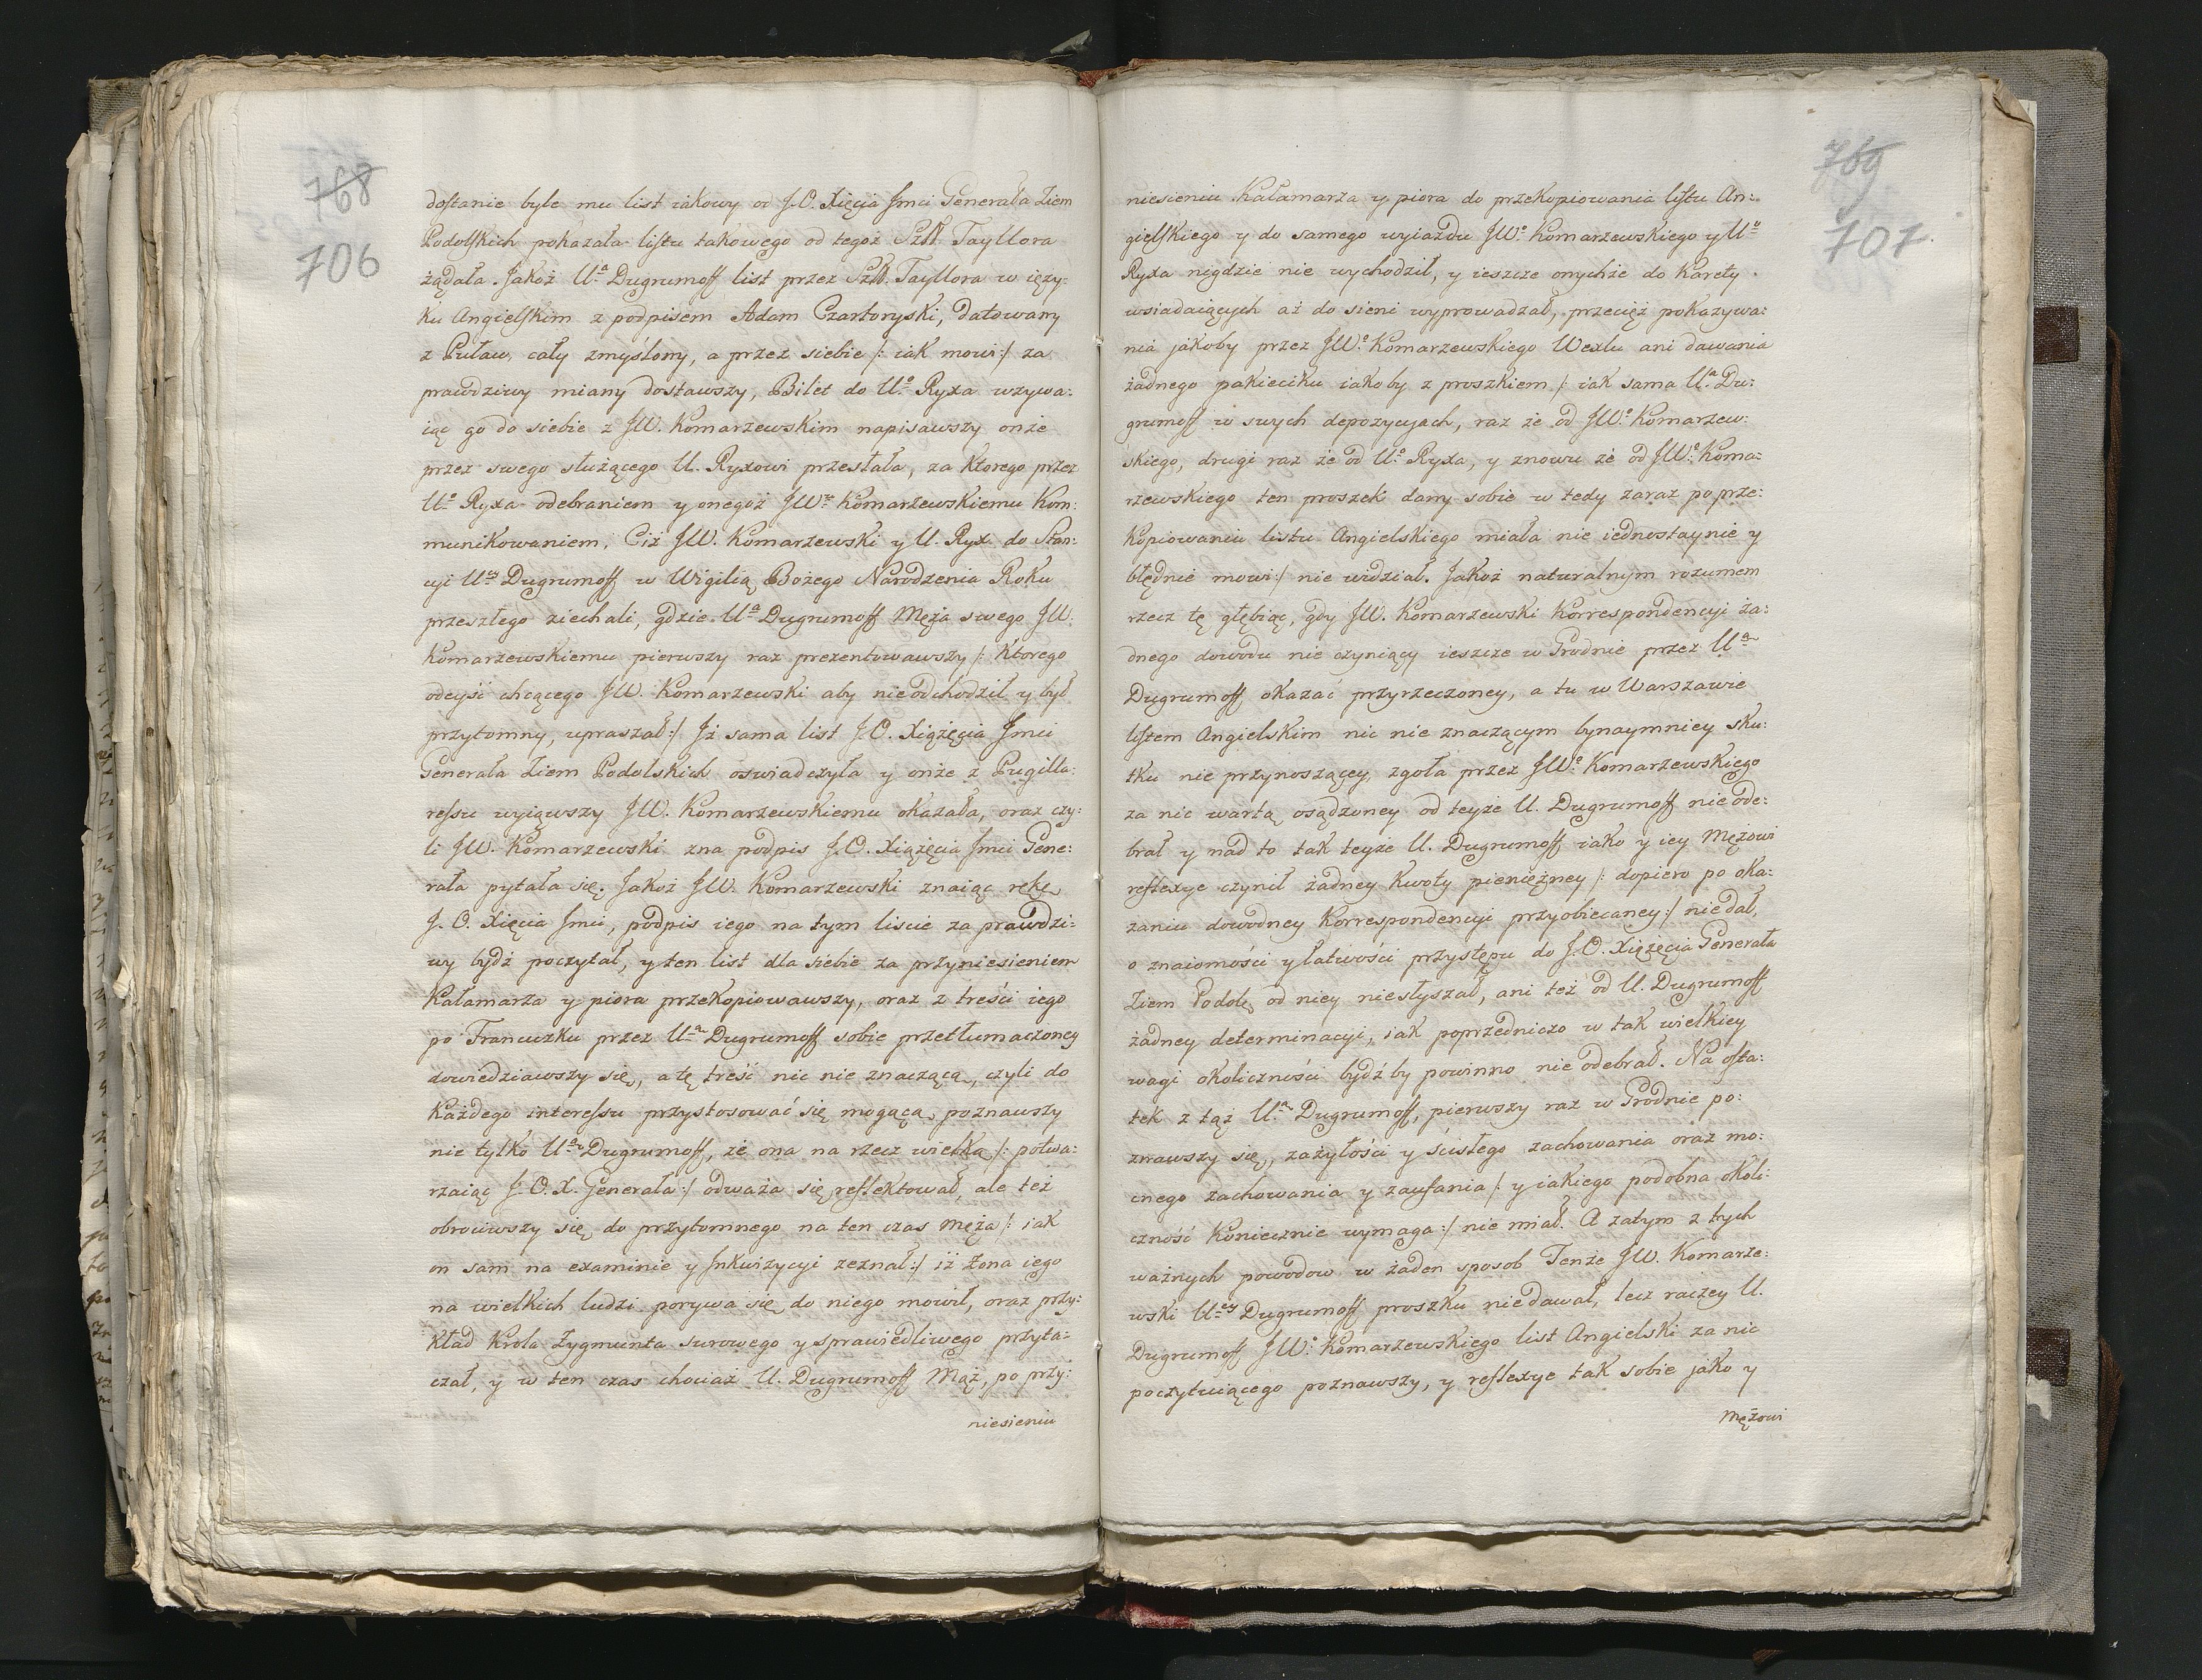 768
706
dostanie byle mu list iakowy od J.O. Xięcia Jmci Generała Ziem
Podolskich pokazała listu takowego od tegoż Szl. Tayllora
żądała. Jakoż Ua Dugrumoff list przez Szl. Tayllora w ięzy:
ku Angielskim z podpisem Adam Czartoryski, datowany
z Puław, cały zmyślony, a przez siebie /: iak mowi :/ za
prawdziwy miany dostawszy, Bilet do Uo Ryxa wzywa:
iąc go do siebie z JW. Komarzewskim napisawszy onże
przez swego służącego U. Ryxowi przesłała, za ktorego przez
Uo Ryxa odebraniem y onegoż JWmu Komarzewskiemu kom:
munikowaniem, Ciż JW. Komarzewski y U. Ryx do Stan:
cyi Uey Dugrumoff w Wigilią Bożego Narodzenia Roku
przeszłego ziechali, gdzie Ua Dugrumoff Męża swego JW.
Komarzewskiemu pierwszy raz prezentowawszy /: ktorego
odeyść chcącego JW. Komarzewski aby nieodchodził y był
przytomny, upraszał :/ Jż sama list J.O. Xiążęcia Jmci
Generała Ziem Podolskich oswiadczyła y onże z Pugilla:
ressu wyiąwszy JW. Komarzewskiemu okazała, oraz czy:
li JW. Komarzewski zna podpis J.O. Xiążęcia Jmci Gene:
rała pytała się. Jakoż JW. Komarzewski znaiąc rękę
J. O. Xięcia Jmci, podpis iego na tym liscie za prawdzi:
wy bydź poczytał, y ten list dla siebie za przyniesieniem
Kałamarza y piora przekopiowawszy, oraz z treści iego
po Francuzku przez Uą Dugrumoff sobie przetłumaczoney
dowiedziawszy się, a tę treść nic nie znaczącą, czyli do
każdego interessu przystosować się mogącą, poznawszy
nie tylko Uą Dugrumoff, że ona na rzecz wielką /: potwa:
rzaiąc J. O. X. Generała :/ odważa się reflektował, ale też
obrociwszy się do przytomnego na ten czas męża /: iak
on sam na examinie y Jnkwizycyi zeznał :/ iż żona iego
na wielkich ludzi porywa się do niego mowił, oraz przy:
kład Krola Zygmunta surowego y sprawiedliwego przyta:
czał, y w ten czas chociaż U. Dugrumoff Mąż, po przy:
niesieniu
769
707.
niesieniu Kałamarza y piora do przekopiowania listu An:
gielskiego y do samego wyiazdu JWo Komarzewskiego y Uo
Ryxa nigdzie nie wychodził, y ieszcze onychże do karety
wsiadaiących aż do sieni wyprowadzał, przecięż pokazywa:
nia jakoby przez JWo Komarzewskiego Wexlu ani dawania
żadnego pakieciku iakoby z proszkiem /: iak sama Ua Du:
grumoff w swych depozycyach, raz że od JWo Komarzew:
skiego, drugi raz że od Uo Ryxa, y znowu że od JWo Koma:
rzewskiego ten proszek dany sobie w tedy zaraz po prze:
kopiowaniu listu Angielskiego miała nie iednostaynie y
błędnie mowi :/ nie widział. Jakoż naturalnym rozumem
rzecz tę głębiąc, gdy JW. Komarzewski Korrespondencyi ża:
dnego dowodu nie czyniący ieszcze w Grodnie przez Uą
Dugrumoff okazać przyrzeczoney, a tu w Warszawie
listem Angielskim nic nie znaczącym bynaymniey sku:
tku nie przynoszącey, zgoła przez JWo Komarzewskiego
za nic wartą osądzoney od teyże U. Dugrumoff nie ode:
brał y nad to tak teyże U. Dugrumoff iako y iey Mężowi
reflexye czynił żadney kwoty pieniężney /: dopiero po oka:
zaniu dowodney Korrespondencyi przyobiecaney :/ nie dał,
o znaiomości y łatwości przystępu do J.O. Xiążęcia Generała
Ziem Podolę od niey niesłyszał, ani też od U. Dugrumoff
żadney determinacyi, iak poprzedniczo w tak wielkiey
wagi okoliczności bydź by powinno nie odebrał. Na osta:
tek z tąż Uą Dugrumoff, pierwszy raz w Grodnie po:
znawszy się, zażyłości y ścisłego zachowania oraz mo:
cnego zachowania y zaufania /: y iakiego podobna okoli:
czność koniecznie wymaga :/ nie miał. A zatym z tych
ważnych powodow w żaden sposob Tenże JW. Komarze:
wski Uey Dugrumoff proszku niedawał, lecz raczey U.
Dugrumoff JWo Komarzewskiego list Angielski za nic
poczytuiącego poznawszy, y reflexye tak sobie jako y
Mężowi